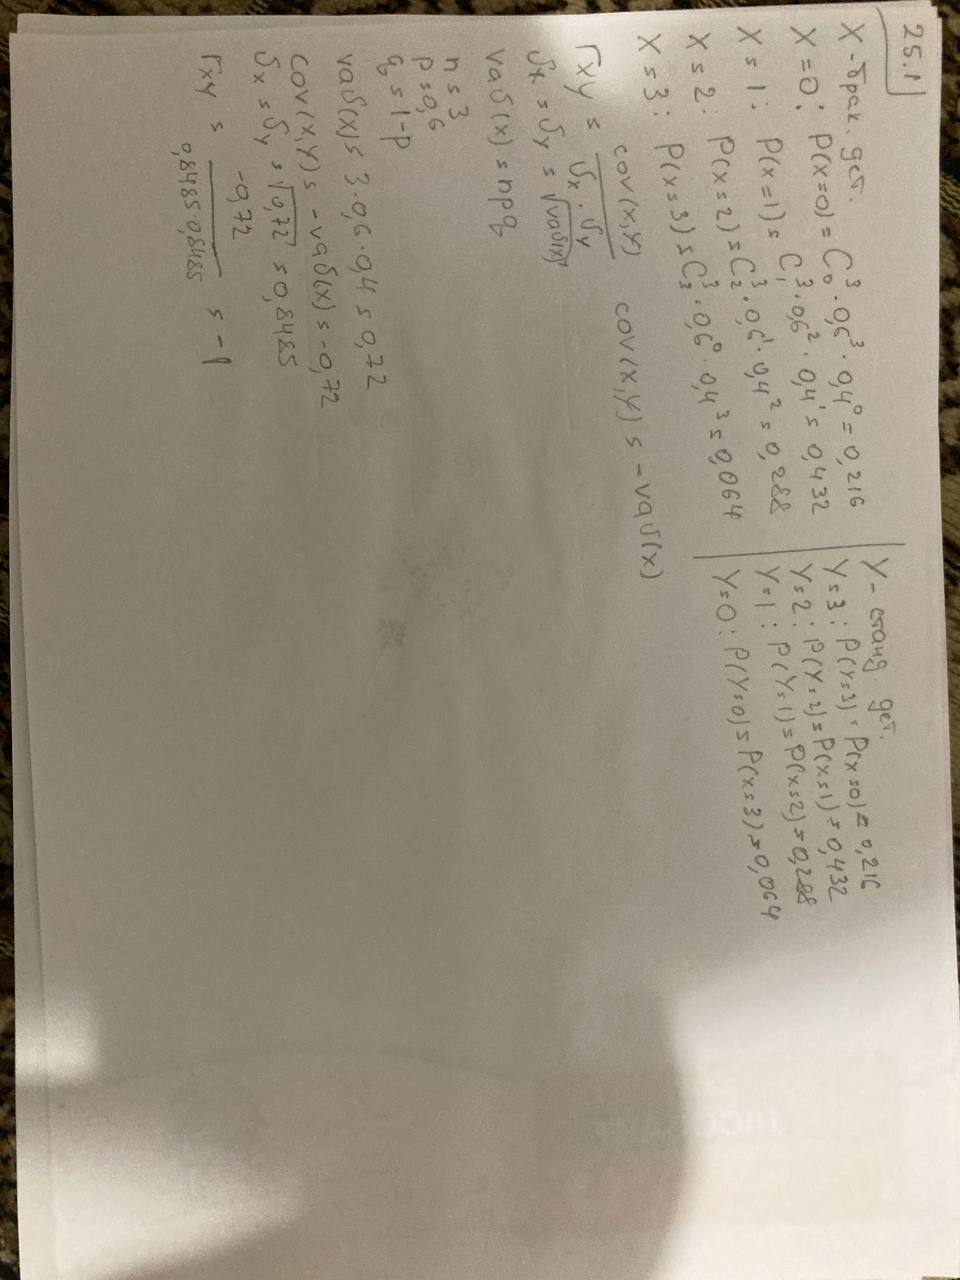 25.1
X - брак. дет.
X = 0: P(X=0) = C₀³ · 0,6³ · 0,4⁰ = 0,216
X = 1: P(X=1) = C₁³ · 0,6² · 0,4¹ = 0,432
X = 2: P(X=2) = C₂³ · 0,6¹ · 0,4² = 0,288
X = 3: P(X=3) = C₃³ · 0,6⁰ · 0,4³ = 0,064
Y - станд. дет.
Y=3: P(Y=3) = P(X=0) = 0,216
Y=2: P(Y=2) = P(X=1) = 0,432
Y=1: P(Y=1) = P(X=2) = 0,288
Y=0: P(Y=0) = P(X=3) = 0,064
rxy = cov(X,Y) / σx · σy cov(X,Y) = -var(X)
σx = σy = √var(X)
var(X) = npq
n = 3
p = 0,6
q = 1-p
var(X) = 3 · 0,6 · 0,4 = 0,72
cov(X,Y) = -var(X) = -0,72
σx = σy = √0,72 = 0,8485
rxy = -0,72 / 0,8485·0,8485 = -1